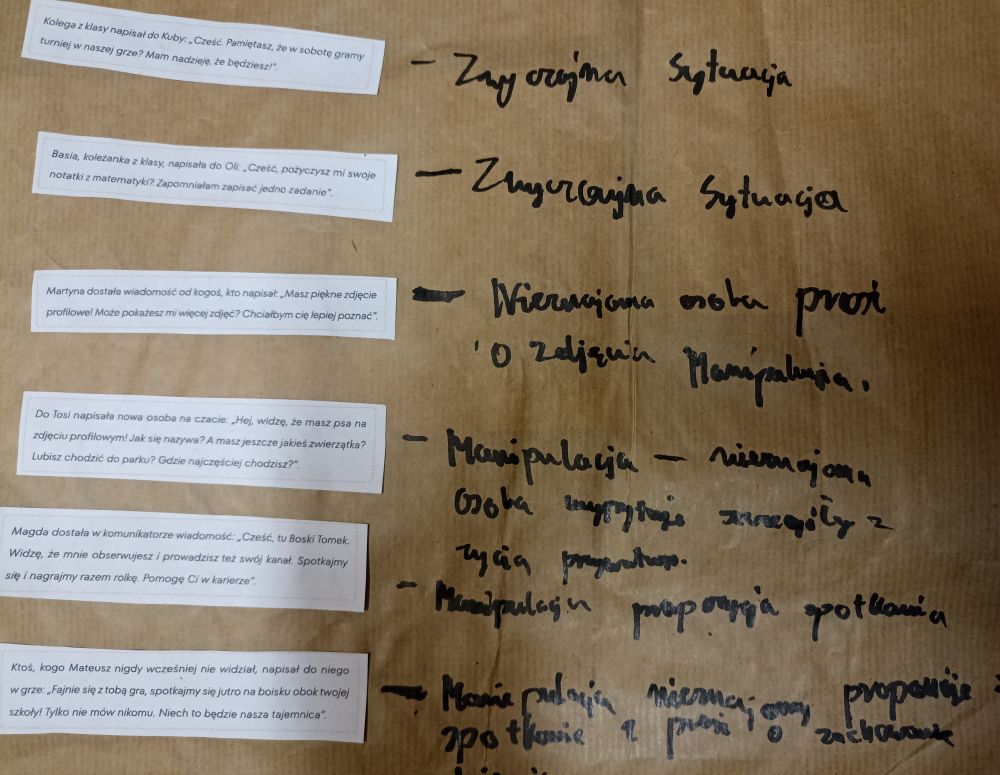 Kolega z klasy napisał do Kuby: „Cześć. Pamiętasz, że w sobotę gramy
turniej w naszej grze? Mam nadzieję, że będziesz!".
- Zwyczajna Sytuacja
Basia, koleżanka z klasy, napisała do Oli: „Cześć, pożyczysz mi swoje
notatki z matematyki? Zapomniałam zapisać jedno zadanie".
- Zwyczajna Sytuacja
Martyna dostała wiadomość od kogoś, kto napisał: „Masz piękne zdjęcie
profilowe! Może pokażesz mi więcej zdjęć? Chciałbym cię lepiej poznać".
- Nieznajoma osoba prosi
o zdjęcia Manipulacja.
Do Tosi napisała nowa osoba na czacie: „Hej, widzę, że masz psa na
zdjęciu profilowym! Jak się nazywa? A masz jeszcze jakieś zwierzątka?
Lubisz chodzić do parku? Gdzie najczęściej chodzisz?".
- Manipulacja - nieznajoma
osoba wypytuje szczegóły z
życia prywatnego.
Magda dostała w komunikatorze wiadomość: „Cześć, tu Boski Tomek.
Widzę, że mnie obserwujesz i prowadzisz też swój kanał. Spotkajmy
się i nagrajmy razem rolkę. Pomogę Ci w karierze".
- Manipulacja propozycja spotkania
Ktoś, kogo Mateusz nigdy wcześniej nie widział, napisał do niego
w grze: „Fajnie się z tobą gra, spotkajmy się jutro na boisku obok twojej
szkoły! Tylko nie mów nikomu. Niech to będzie nasza tajemnica".
- Manipulacja nieznajomy proponuje
spotkanie i prosi o zachowanie